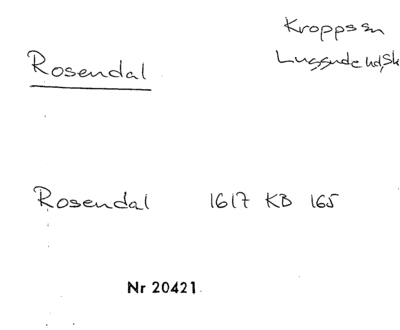 Kropps sn
Rosendal
Luggude hd, Sk
Rosendal 1617 KB 165
Nr 20421